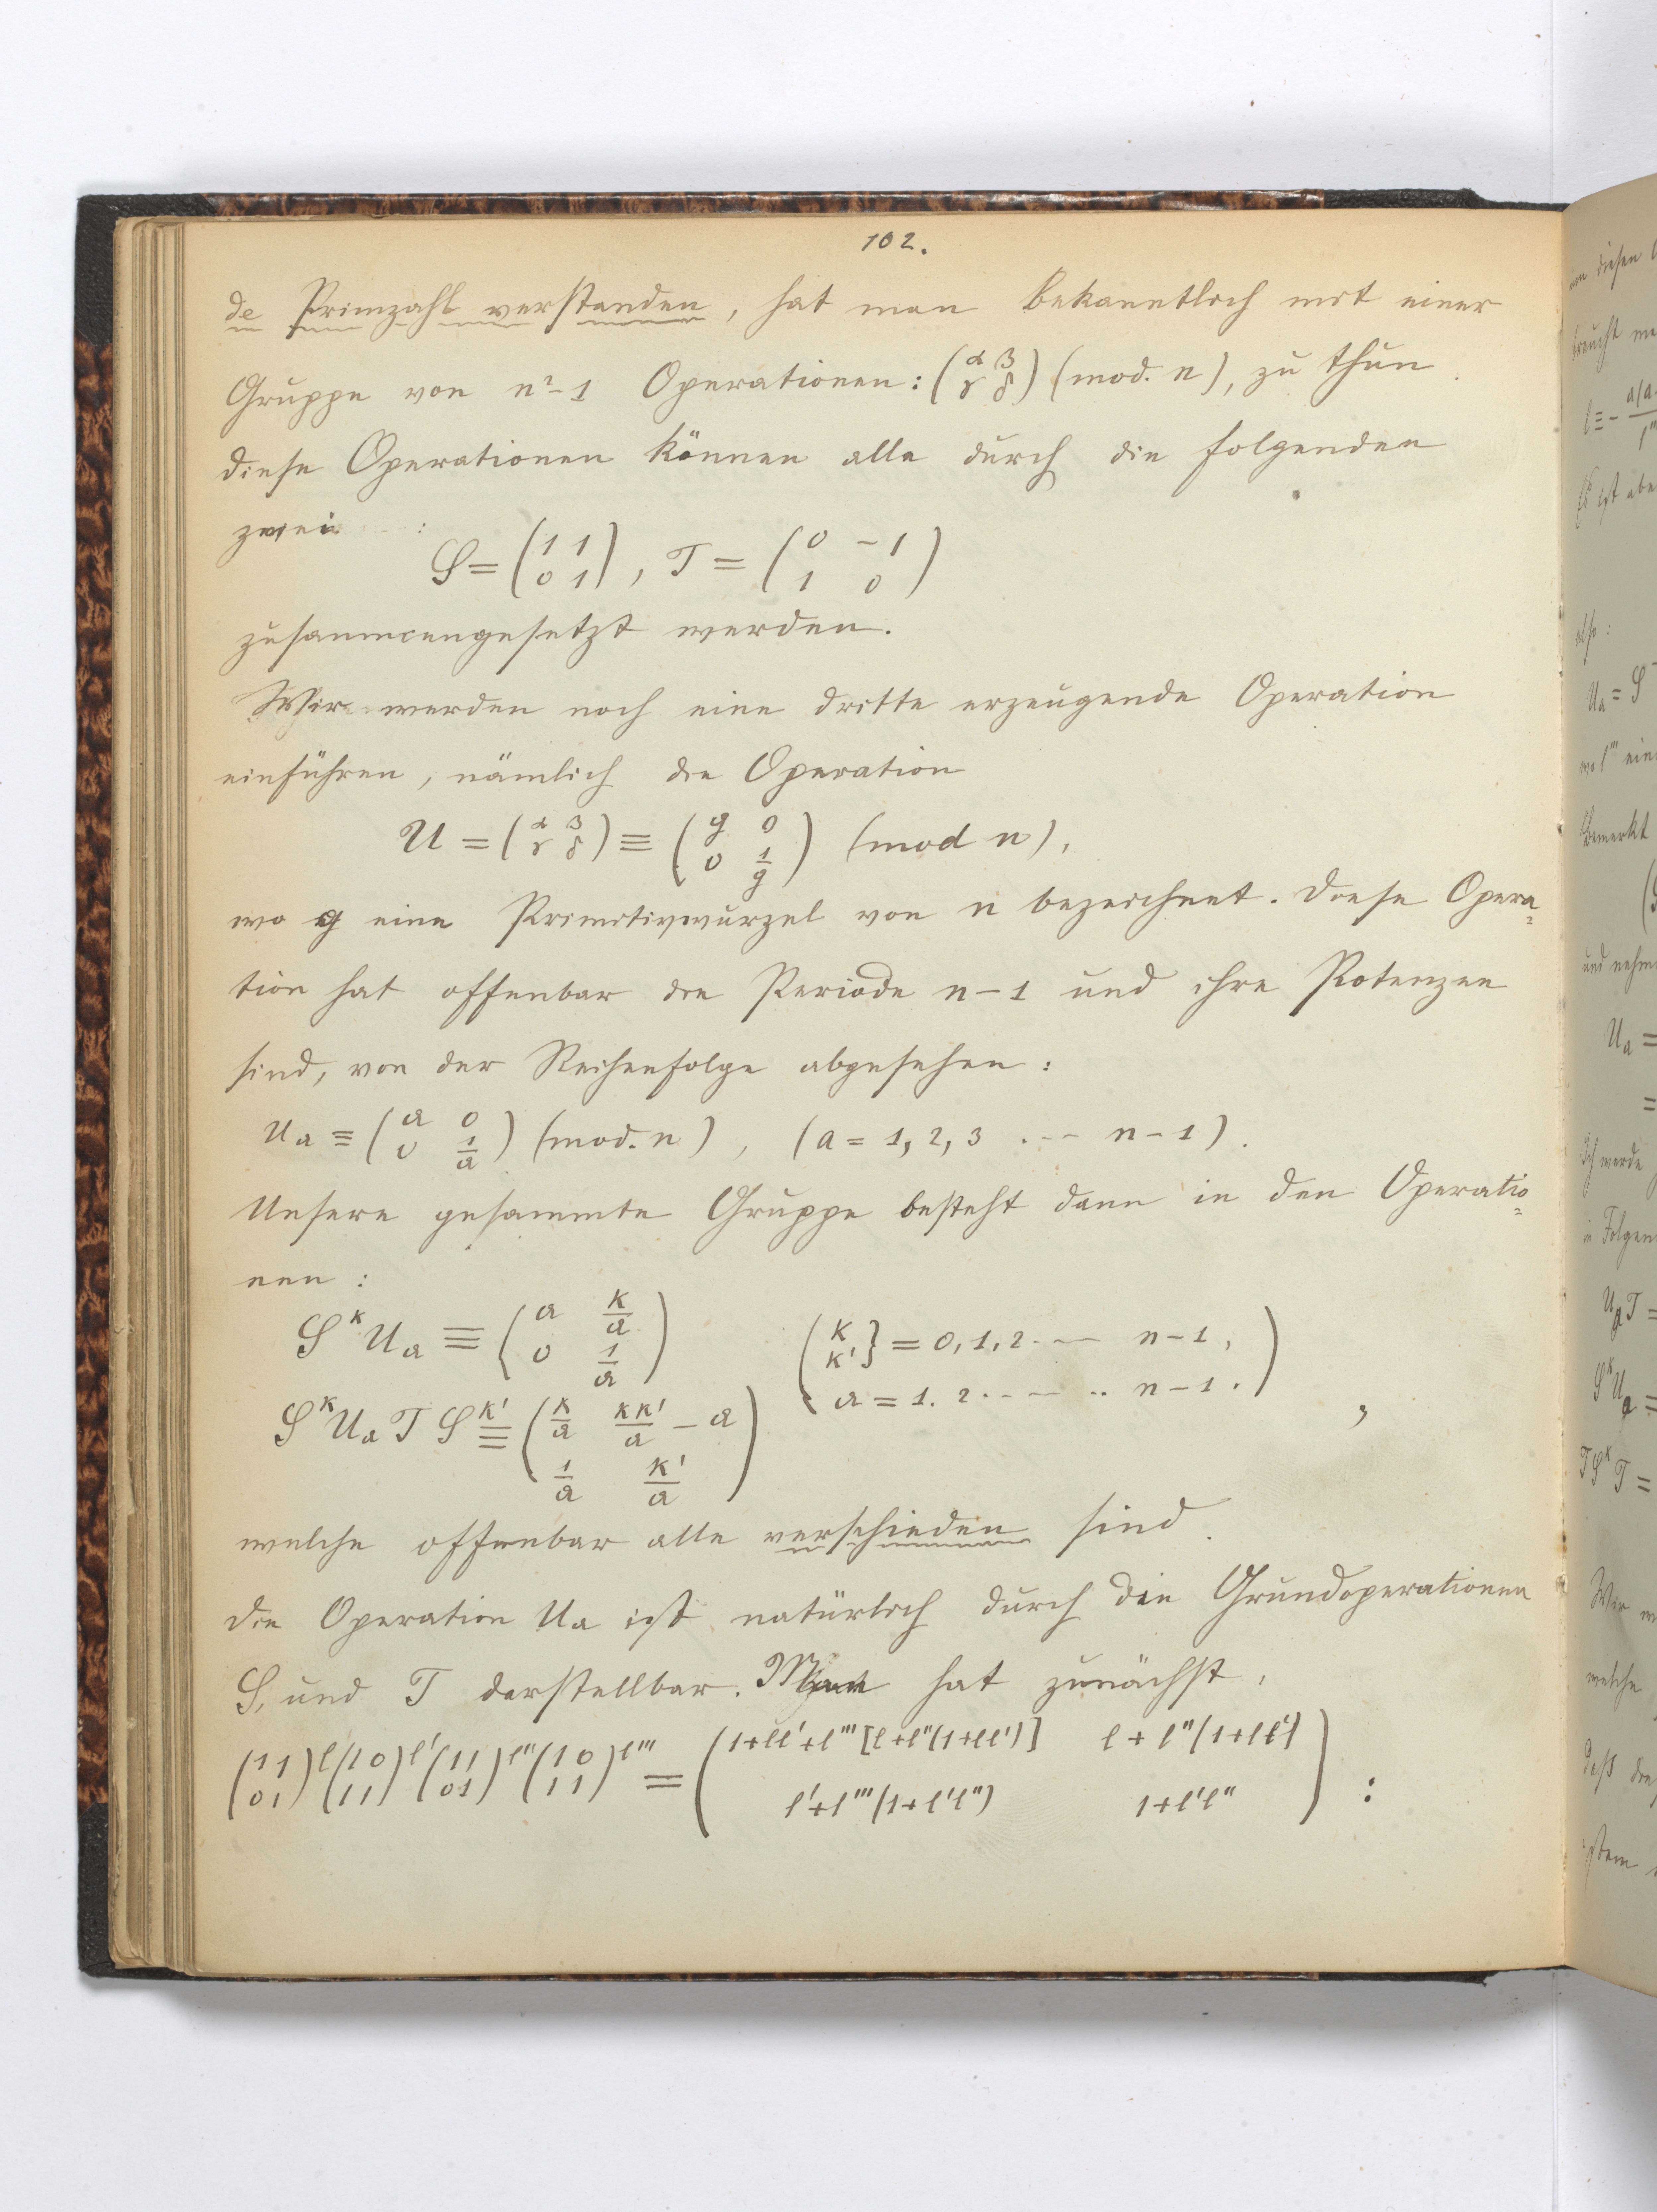 102.
de Primzahl verstanden, hat man bekanntlich mit einer
Gruppe von n²-1 Operationen: (α β / γ δ) (mod. n), zu thun.
diese Operationen können alle durch die folgenden
zwei :
S = (1 1 / 0 1), T = (0 -1 / 1 0)
zusammengesetzt werden.
Wir werden noch eine dritte erzeugende Operation
einführen, nämlich die Operation
U = (α β / γ δ) ≡ (g 0 / 0 1/g) (mod n),
wo g eine Primitivwurzel von n bezeichnet. Diese Opera=
tion hat offenbar die Periode n-1 und ihre Potenzen
sind, von der Reihenfolge abgesehen:
Uₐ ≡ (a 0 / 0 1/a) (mod. n), (a = 1, 2, 3 .-- n-1).
Unsere gesammte Gruppe besteht dann in den Operatio=
nen:
Sᵏ Uₐ ≡ (a k/a / 0 1/a) (k k'} = 0, 1, 2 .-- n-1,
Sᵏ Uₐ T Sᵏ' ≡ (k/a kk'/a - a / 1/a k'/a) a = 1. 2 .-- .. n-1.) ,
welche offenbar alle verschieden sind.
die Operation Uₐ ist natürlich durch die Grundoperationen
S, und T darstellbar. Man hat zunächst,
(1 1 / 0 1)^l (1 0 / 1 1)^l' (1 1 / 0 1)^l'' (1 0 / 1 1)^l''' = (1+ll'+l'''[l+l''(1+ll')] l+l''(1+ll') / l'+l'''(1+l'l'') 1+l'l'') :